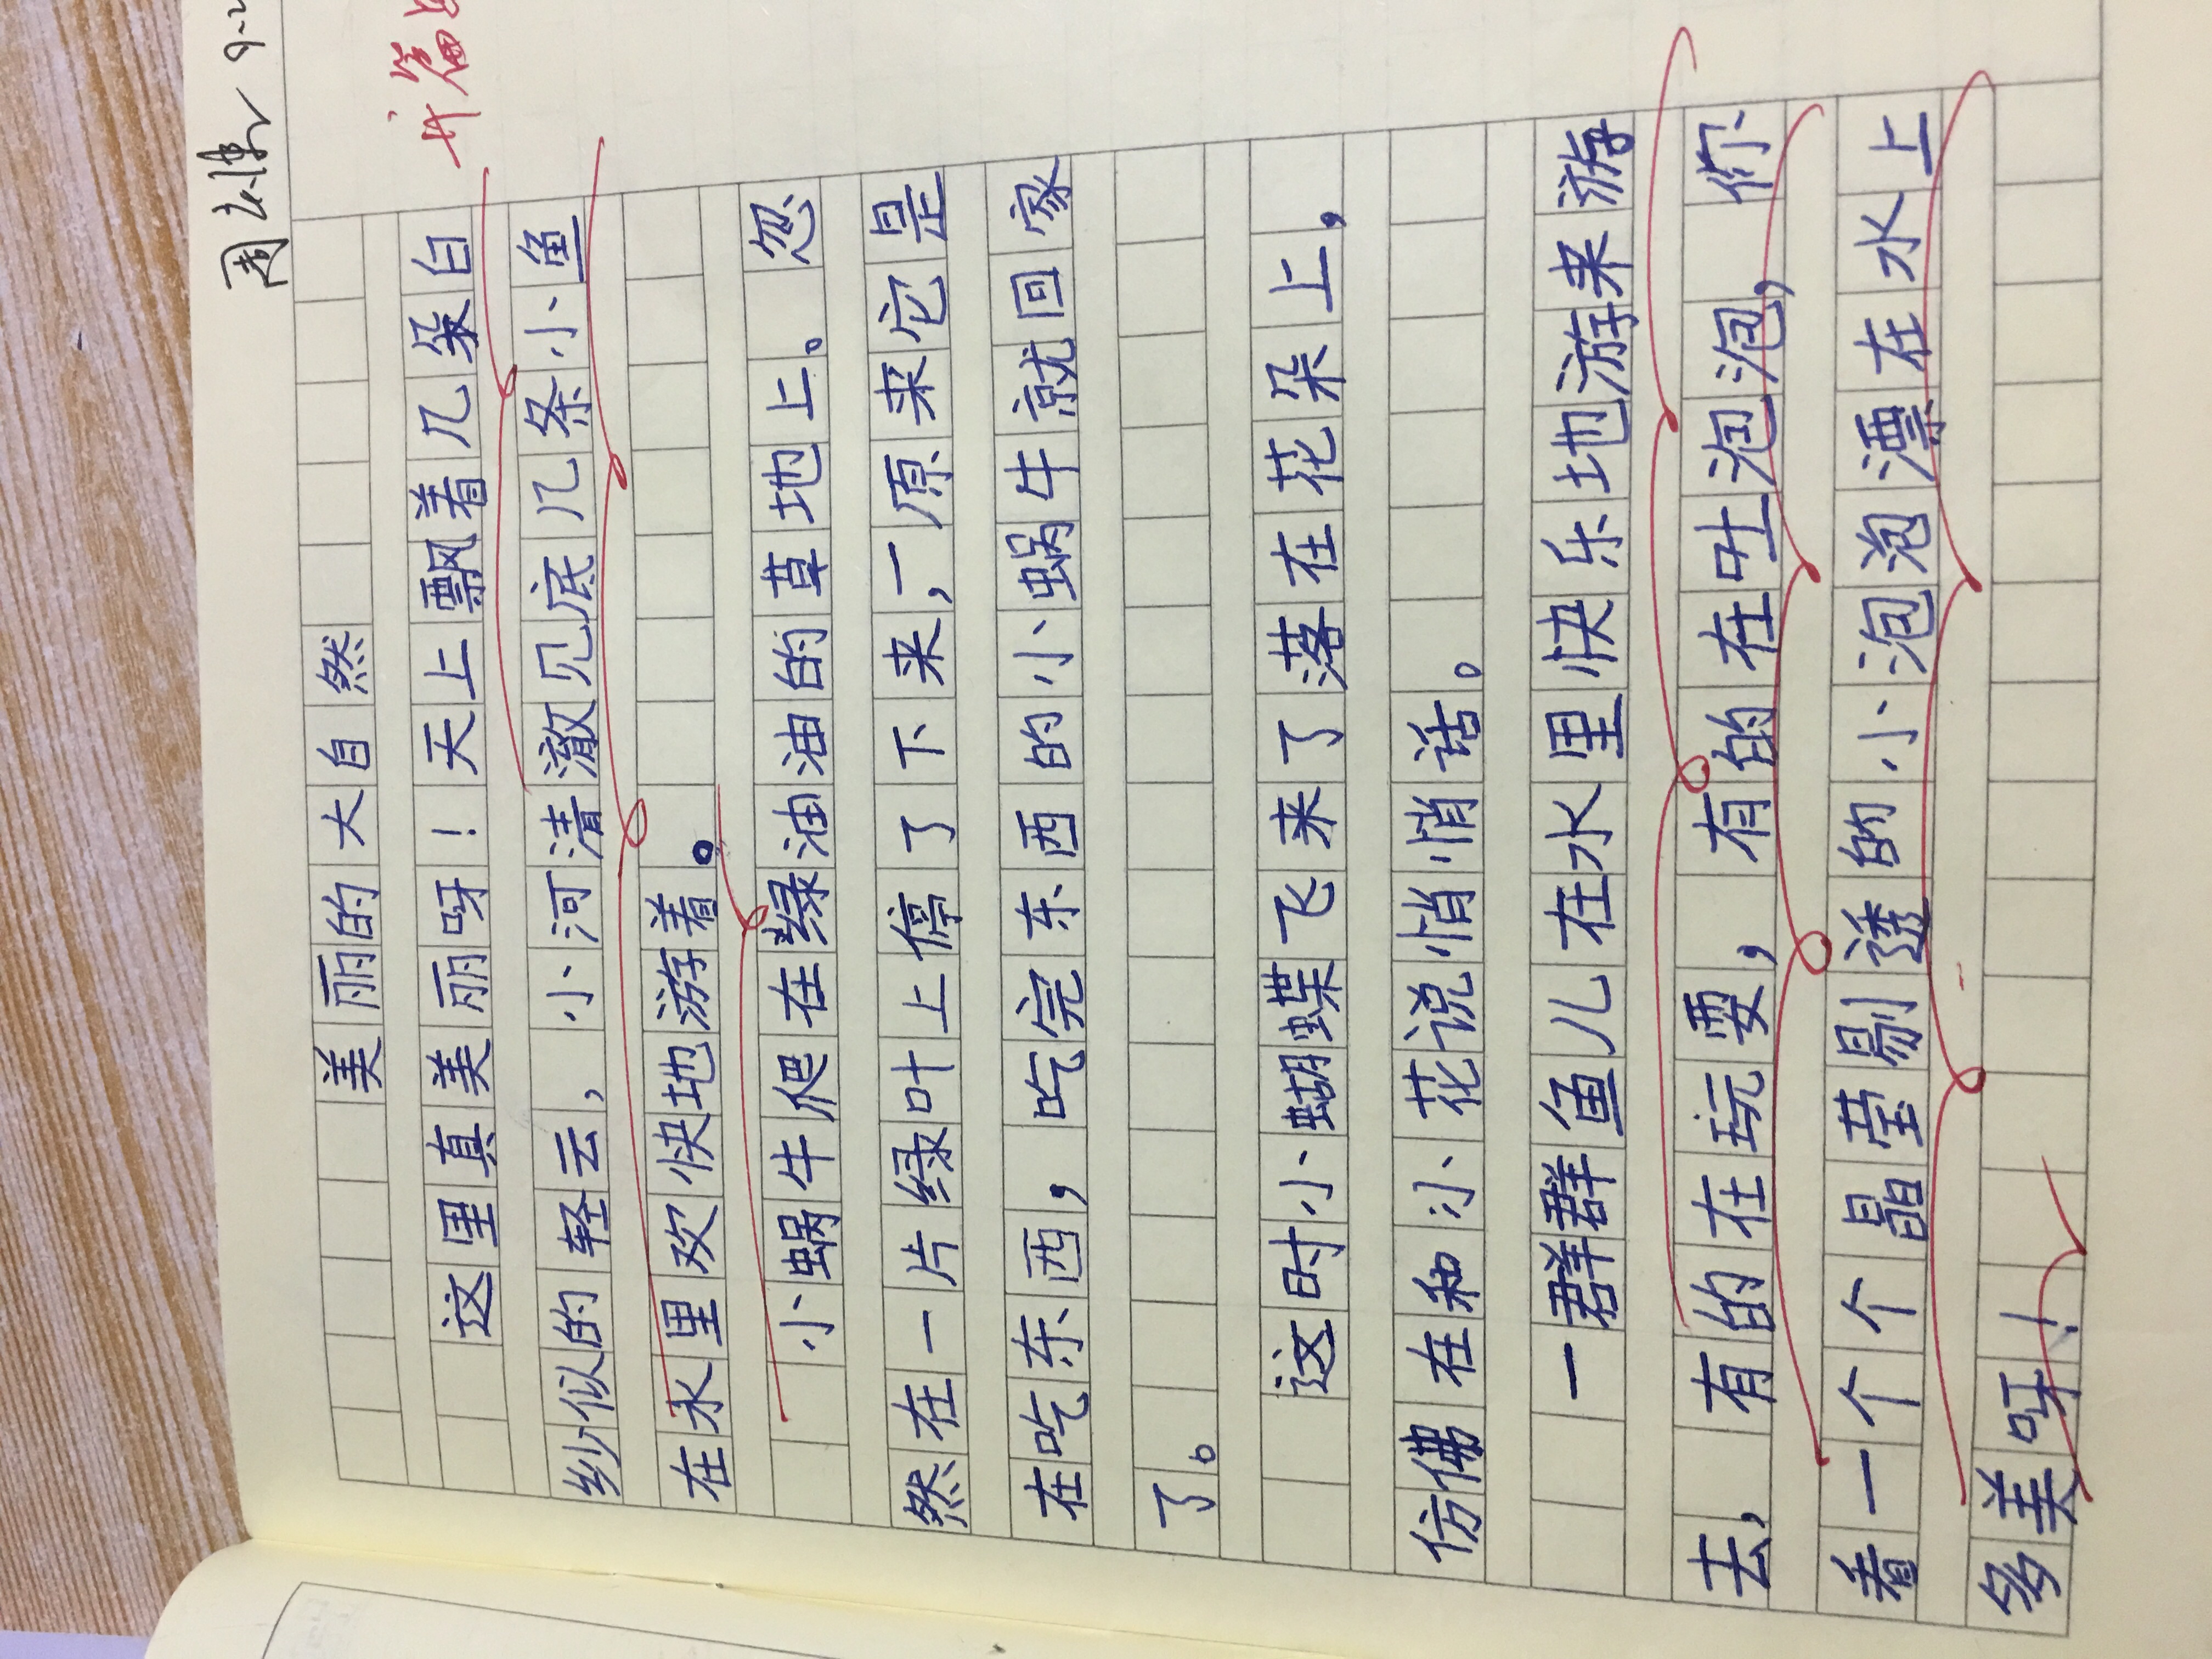 美丽的大自然
这里真美丽呀！天上飘着几朵白
纱似的轻云，小河清澈见底几条小鱼
在水里欢快地游着。
小蜗牛爬在绿油油的草地上。忽
然在一片绿叶上停了下来，一原来它是
在吃东西，吃完东西的小蜗牛就回家
了。
这时小蝴蝶飞来了落在花朵上，
仿佛在和小花说悄悄话。
一群群鱼儿在水里快乐地游来游
去，有的在玩耍，有的在吐泡泡，你
看一个个晶莹剔透的小泡泡漂在水上
多美呀！
开篇